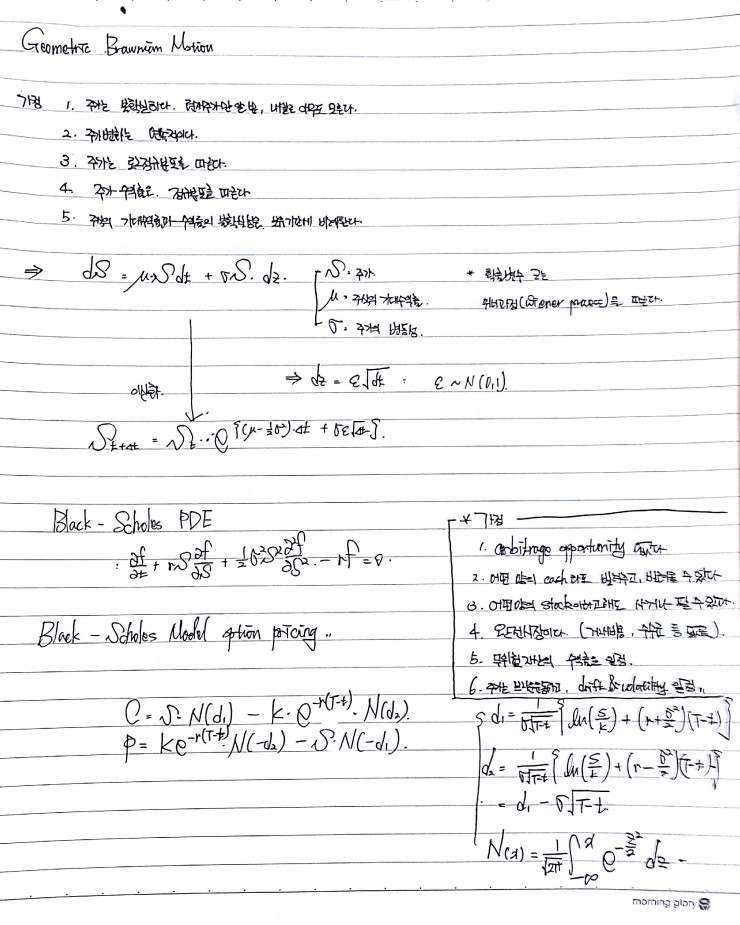 Geometric Brawnian Motion
가정 1. 주가는 불확실하다. 현재주가만 알 뿐, 내일은 아무도 모른다.
2. 주가변화는 연속적이다.
3. 주가는 로그정규분포를 따른다.
4. 주가수익률은 정규분포를 따른다
5. 주식의 기대수익률과 수익률의 불확실성은 보유기간에 비례한다.
⇒ dS = μSdt + σS·dz.
S: 주가
μ: 주식의 기대수익률.
σ: 주가의 변동성.
* 확률변수 z는
위너과정(wiener process)을 따른다.
⇒ dz = ε√dt : ε ~ N(0,1).
이산화
S_{t+Δt} = S_t · e^{{(μ-½σ²)·Δt + σε√Δt}}.
Black - Scholes PDE
: ∂f/∂t + rS ∂f/∂S + ½σ²S² ∂²f/∂S² - rf = 0.
* 가정
1. arbitrage opportunity 없다
2. 어떤 양의 cash라도 빌려주고, 빌려올 수 있다
3. 어떤양의 stock이라고해도 사거나 팔 수 있다.
4. 완전시장이다. (거래비용, 수수료 등 없음).
5. 무위험자산의 수익률은 일정.
6. 주가는 브라운운동하고, drift & volatility 일정.
Black - Scholes Model option pricing..
C = S·N(d₁) - K·e^{-r(T-t)}·N(d₂).
P = Ke^{-r(T-t)}·N(-d₂) - S·N(-d₁).
d₁ = 1/(σ√T-t) {ln(S/K) + (r+σ²/2)(T-t)}
d₂ = 1/(σ√T-t) {ln(S/K) + (r-σ²/2)(T-t)}
= d₁ - σ√T-t
N(x) = 1/√2π ∫_{-∞}^{x} e^{-z²/2} dz
morning glory